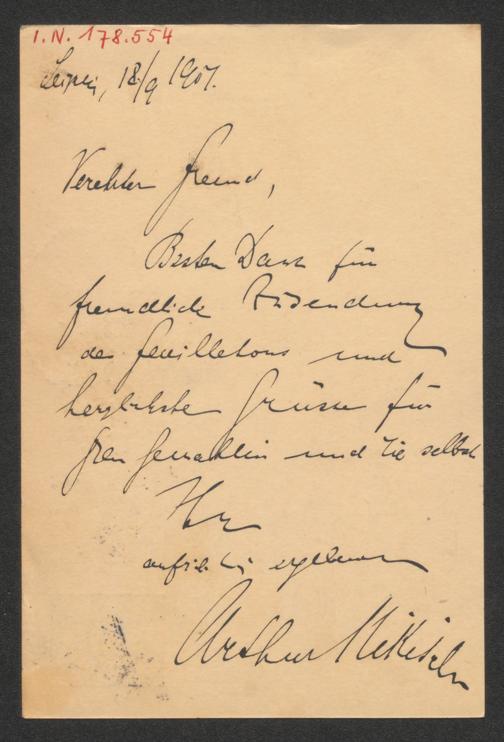 I.N. 178.554
Leipzig, 18/9 1907.
Verehrter Freund,
Besten Dank für
freundliche Zusendung
des Feuilletons und
herzlichste Grüsse für
Frau Gemahlin und Sie selbst
Ihr
aufrichtig ergebener
Arthur Nikisch